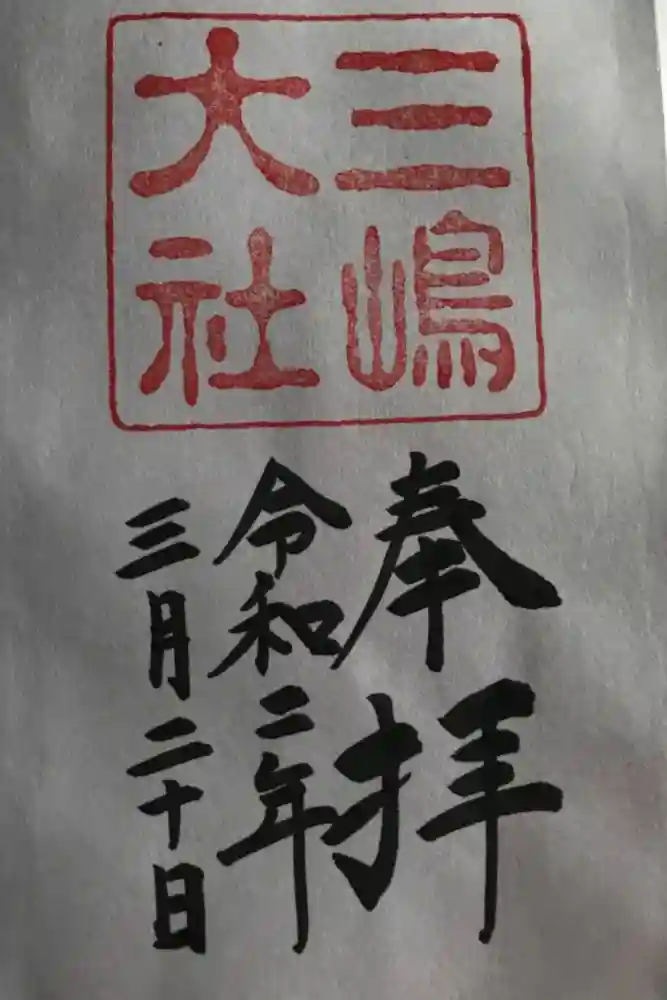 三嶋
大社
奉拝
令和二年
三月二十日